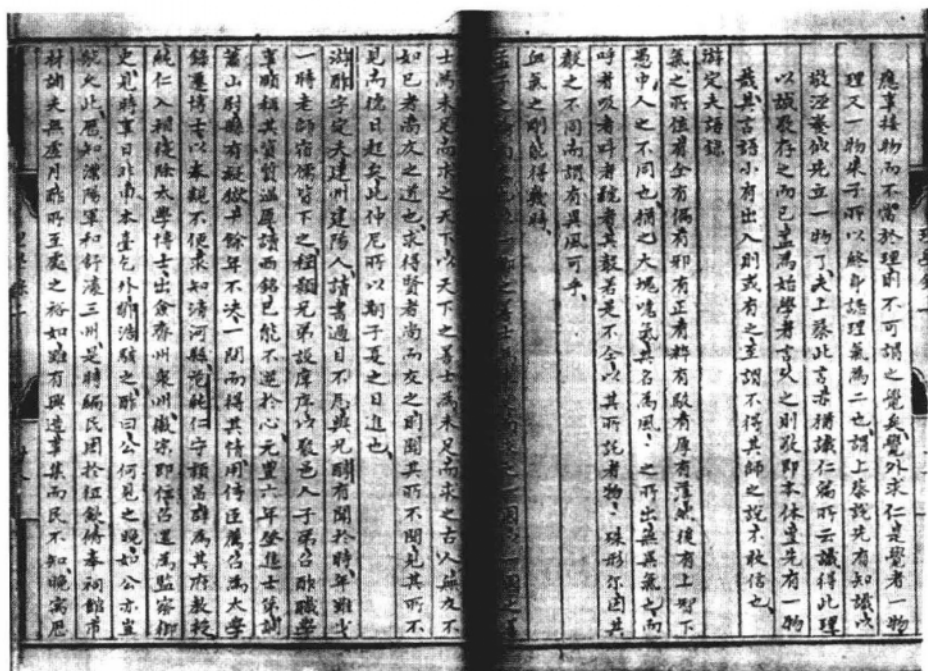 應事接物而不當於理則不可謂之覺矣覺外求仁是覺者一物
理又一物朱子所以終身認理氣為二也謂上蔡說先有知識以
敬涵養似先立一物了夫上蔡此言亦猶識仁篇所云識得此理
以誠敬存之而已蓋為始學者言久之則敬即本體豈先有一物
哉其言語小有出入則或有之至謂不得其師之說不敢信也
游定夫語錄
氣之所值有全有偏有邪有正有粹有駁有厚有薄然後有上智下
愚中人之不同也猶之大塊噫氣其名為風之所出無異氣也而
呼者吸者叫者號者其聲若是不全以其所託者物殊形爾因其
聲之不同而謂有異風可乎
血氣之剛能得幾時
士為未足而求之天下以天下之善士為未足而求之古人無友不
如己者尚友之道也求得賢者尚而友之則聞其所不聞見其所不
見而德日起矣此仲尼所以期子夏之日進也
游酢字定夫建州建陽人讀書過目不忘與兄醇有聞於時年雖少
一時老師宿儒皆下之程顥兄弟設庠序以聚邑人子弟召酢職學
事頗稱其資質溫厚讀西銘已能不逆於心元豐六年登進士第調
蕭山尉縣有疑獄十餘年不決一問而得其情用侍臣薦召為太學
錄遷博士以奉親不便求知清河縣范純仁守潁昌辟為其府教授
純仁入相復除太學博士出僉齊州泉州徽宗即位召還為監察御
史見時事日非本臺乞外鄒浩駭之酢曰公何見之晚如公亦豈
能久此歷知漢陽軍和舒濠三州是時編民困於征斂奉祠館市
材調夫無虛月酢所至處之裕如雖有興造事集而民不知晚寓歷